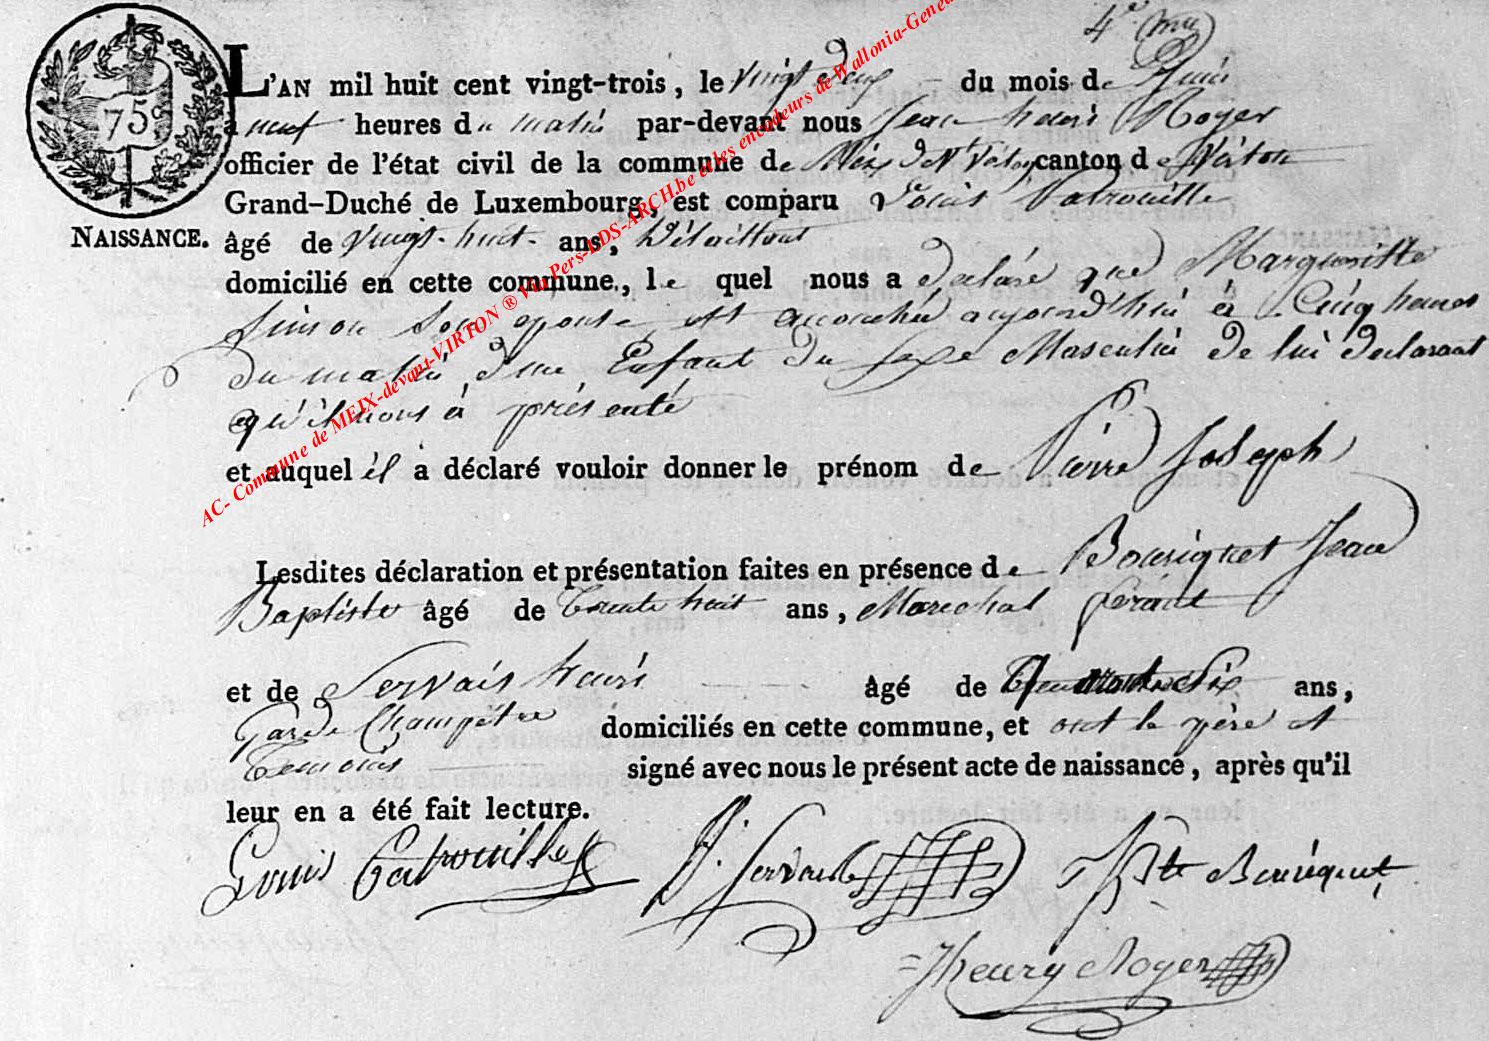 4e
75
L'AN mil huit cent vingt-trois, le vingt deux du mois de Juin
a neuf heures du matin par-devant nous Jean henri Roger
officier de l'état civil de la commune de Meix dvt Virton canton de Virton
Grand-Duché de Luxembourg, est comparu Louis Catrouille
NAISSANCE. âgé de vingt-huit ans,
domicilié en cette commune, le quel nous a déclaré que Margueritte
Simon son epouse est accouchée aujourd'hui à Cinq heures
du matin d'un Enfant du sexe Masculin de lui declarant
qu'il nous à présenté
et auquel il a déclaré vouloir donner le prénom de Pierre Joseph
Lesdites déclaration et présentation faites en présence de Bouriquet Jean
Baptiste âgé de trente huit ans, Marechal ferant
et de Servais henri âgé de Six ans,
Garde Champêtre domiciliés en cette commune, et ont le père et
temoins signé avec nous le présent acte de naissance, après qu'il
leur en a été fait lecture.
Louis Catrouille H. Servais JBte Bouriquet
JHenry Roger
AC- Commune de MEIX-devant-VIRTON ® Via Pers-LDS-ARCH.be et les encodeurs de Wallonia-Genea